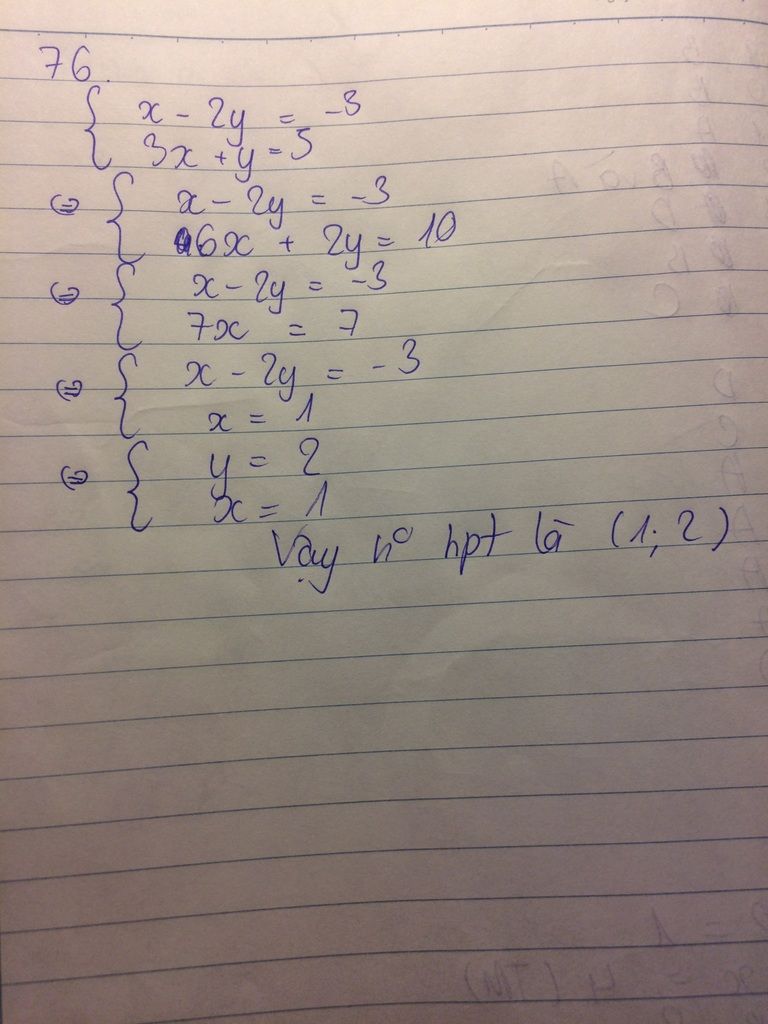 76.
x - 2y = -3
3x + y = 5
⇔ x - 2y = -3
6x + 2y = 10
⇔ x - 2y = -3
7x = 7
⇔ x - 2y = -3
x = 1
⇔ y = 2
x = 1
Vậy n° hpt là (1; 2)